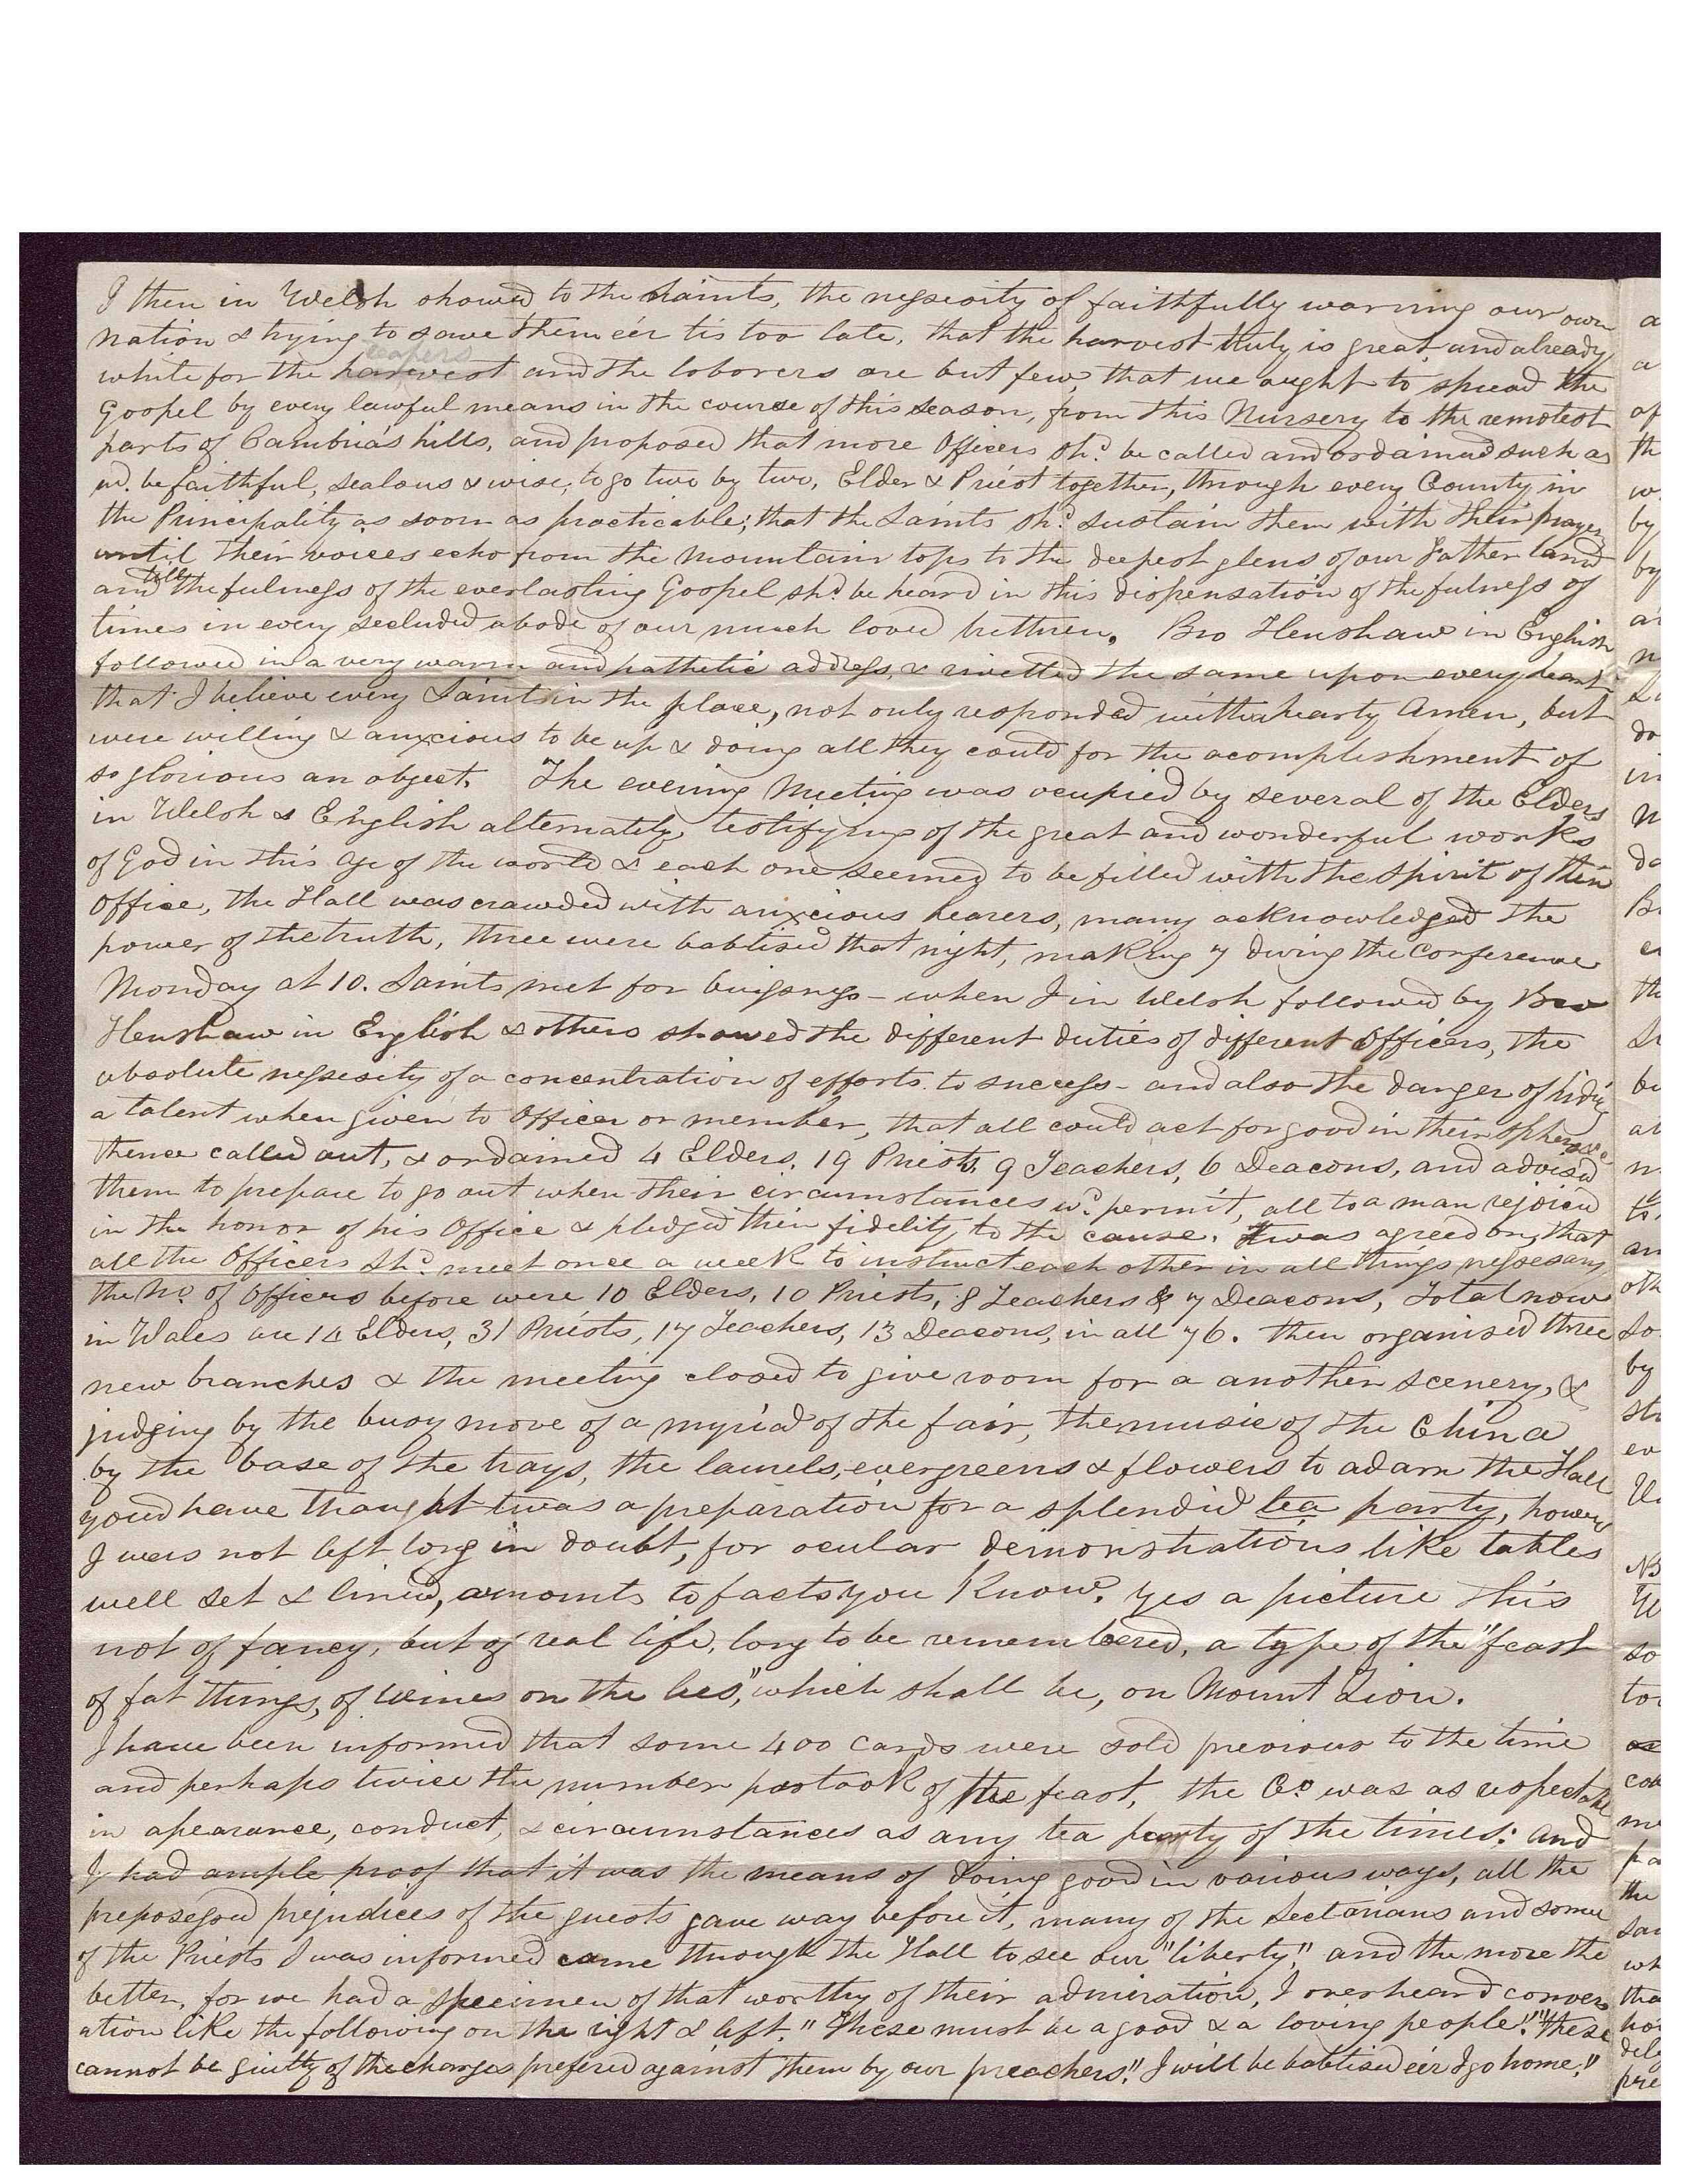 I then in Welsh showed to the Saints, the nessesity of faithfully warning our own
nation & trying to save them eér tis too late, that the harvest truly is great and already
white for the harvest reapers and the laborers are but few, that we aught to spread the
Gospel by every lawful means in the course of this season, from this Nursery to the remotest
parts of Cambria's hills, and proposed that more Officers shd. be called and ordained such as
wd. be faithful, zealous & wise, to go two by two, Elder & Priest together, through every County in
the Principality as soon as practicable; that the Saints shd. sustain them with their prayers
until their voices echo from the mountain tops to the deepest glens of our Father land
and till the fulness of the everlasting Gospel shd. be heard in this dispensation of the fulness of
times in every secluded abode of our much loved brethren. Bro Henshaw in English
followed in a very warm and pathetic address, & rivetted the same upon every heart
that I believe every Saint in the place, not only responded with a hearty Amen, but
were willing & anxcious to be up & doing all they could for the acomplishment of
so glorious an object. The evening Meeting was ocupied by several of the Elders
in Welsh & English alternately, testifying of the great and wonderful works
of God in this age of the world & each one seemed to be filled with the spirit of their
office, the Hall was crawded with anxcious hearers, many acknowledged the
power of the truth, three were babtised that night, making 7 during the Conference
Monday at 10. Saints met for buisness - when I in Welsh followed by Bro
Henshaw in English & others showed the different duties of different Officers, the
absolute nessesity of a concentration of efforts to success - and also the danger of hiding
a talent when given to Officer or member, that all could act for good in their sphere &c
thence called out, & ordained 4 Elders, 19 Priests, 9 Teachers, 6 Deacons, and advised
them to prepare to go out when their circumstances wd. permit, all to a man rejoiced
in the honor of his Office & pledged their fidelity to the cause. It was agreed on, that
all the Officers shd. meet once a week to instruct each other in all things nessesary
the No. of Officers before were 10 Elders, 10 Priests, 8 Teachers & 7 Deacons, Total now
in Wales are 14 Elders, 31 Priests, 17 Teachers, 13 Deacons, in all 76. then organised three
new branches & the meeting closed to give room for a another scenery, &
judging by the busy move of a myriad of the fair, the music of the China
by the base of the trays, the laurels, evergreens & flowers to adarn the Hall
you'd have thaught twas a preparation for a splendid tea party, however
I was not left long in doubt, for ocular demonstrations like tables
well set & lined, amounts to facts you know. Yes a picture this
not of fancy, but of real life, long to be remembered, a type of the "feast
of fat things, of wines on the lees," which shall be, on Mount Zion.
I have been informed that some 400 cards were sold previous to the time
and perhaps twice the number partook of the feast, the Co. was as respectable
in apearance, conduct, & circumstances as any tea party of the times: and
I had ample proof that it was the means of doing good in various ways, all the
preposessed prejudices of the guests gave way before it, many of the Sectarians and some
of the Priests I was informed came through the Hall to see our "liberty," and the more the
better, for we had a specimen of that worthy of their admiration, I overheard convers
ation like the following on the right & left. "These must be a good & a loving people." "These
cannot be guilty of the charges prefered against them by our preachers." I will be babtised eér I go home."